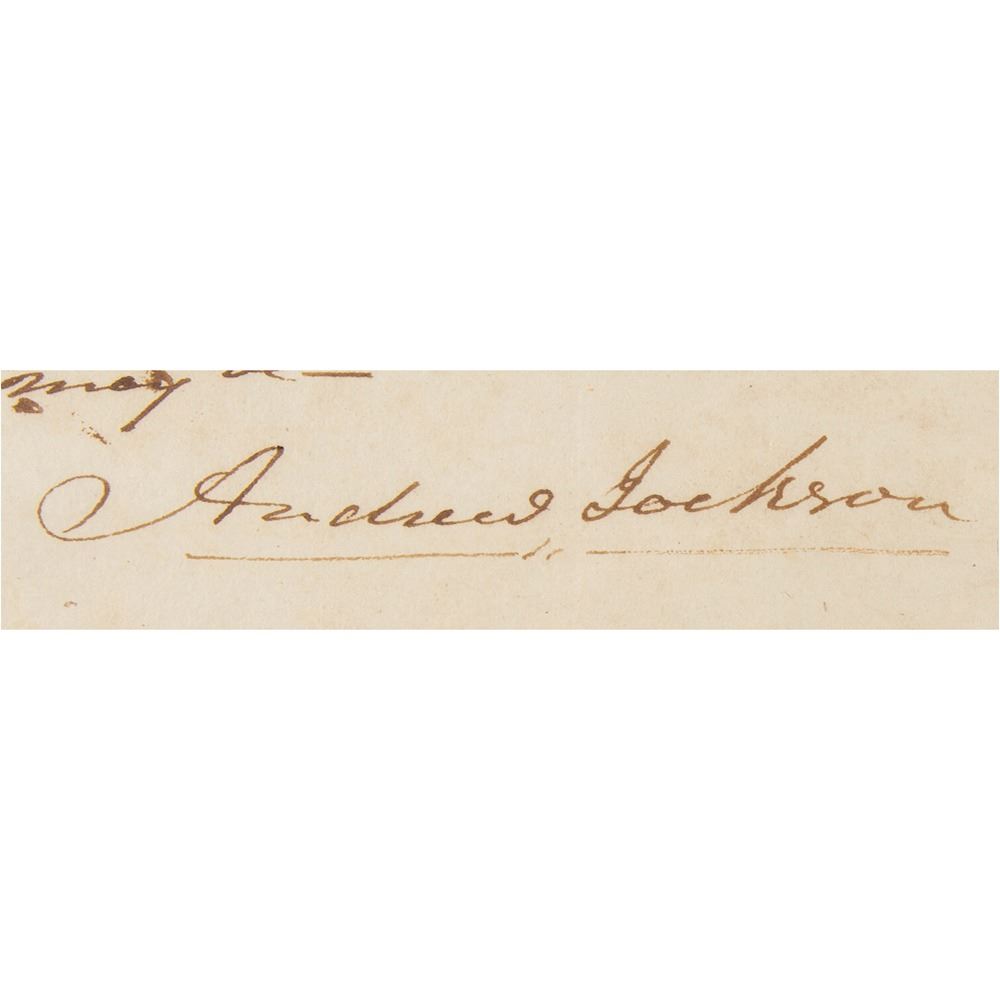 may be
Andrew Jackson